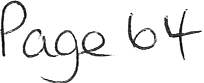 Page 64